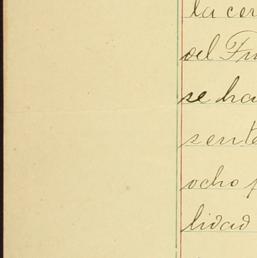 la cer
del Fu
se ha
sente
ocho p
lidad